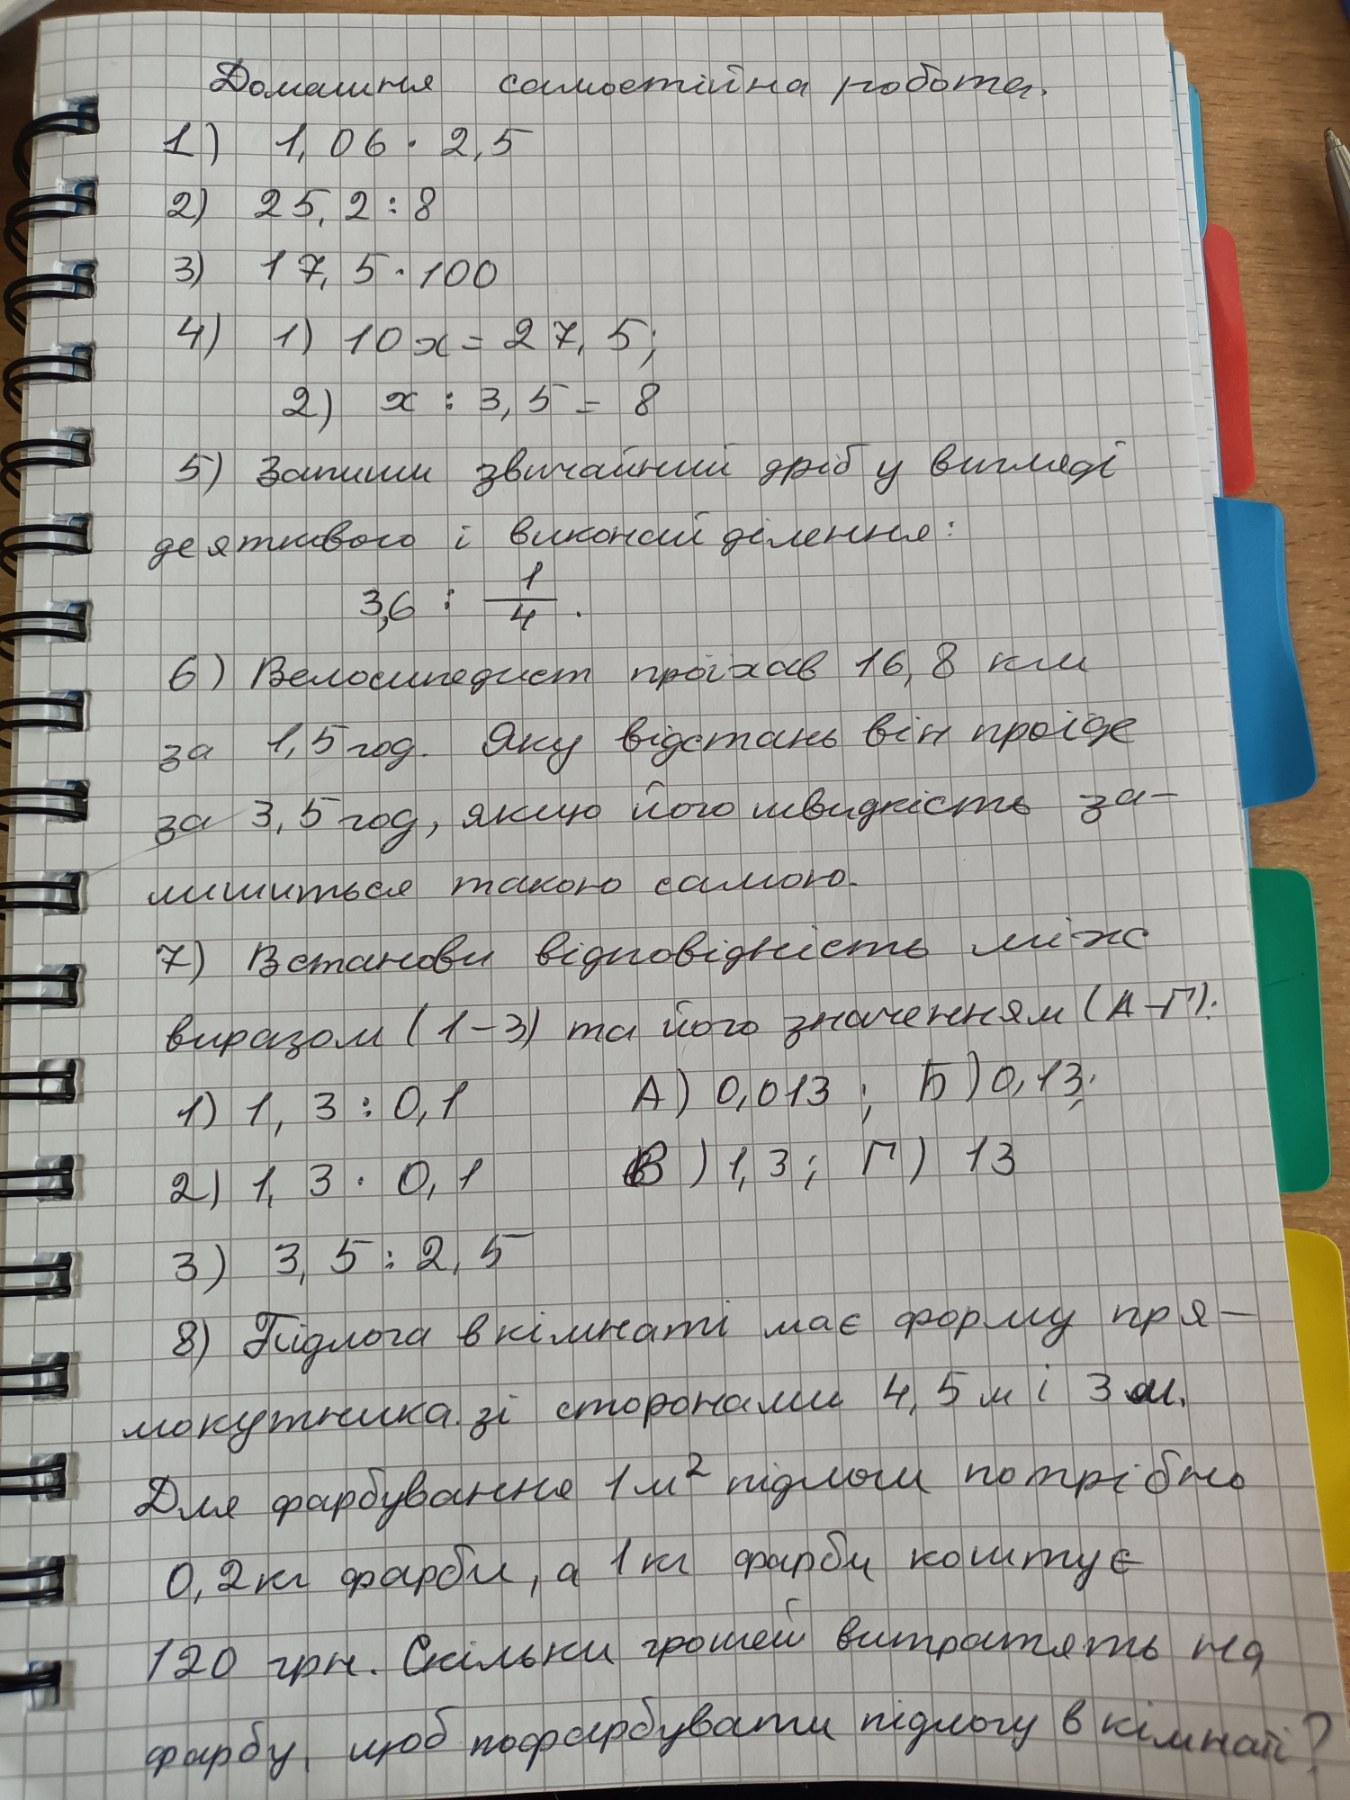 Домашня самостійна робота.
1) 1,06 · 2,5
2) 25,2 : 8
3) 17,5 · 100
4) 1) 10x = 27,5;
2) x : 3,5 = 8
5) Запиши звичайний дріб у вигляді
десяткового і виконай ділення:
3,6 : 1/4.
6) Велосипедист проїхав 16,8 км
за 1,5 год. Яку відстань він проїде
за 3,5 год, якщо його швидкість за-
лишиться такою самою.
7) Встанови відповідність між
виразом (1-3) та його значенням (А-Г):
1) 1,3 : 0,1 А) 0,013 ; Б) 0,13;
2) 1,3 · 0,1 В) 1,3 ; Г) 13
3) 3,5 : 2,5
8) Підлога в кімнаті має форму пря-
мокутника зі сторонами 4,5 м і 3 м.
Для фарбування 1 м² підлоги потрібно
0,2 кг фарби, а 1 кг фарби коштує
120 грн. Скільки грошей витратять на
фарбу, щоб пофарбувати підлогу в кімнаті?